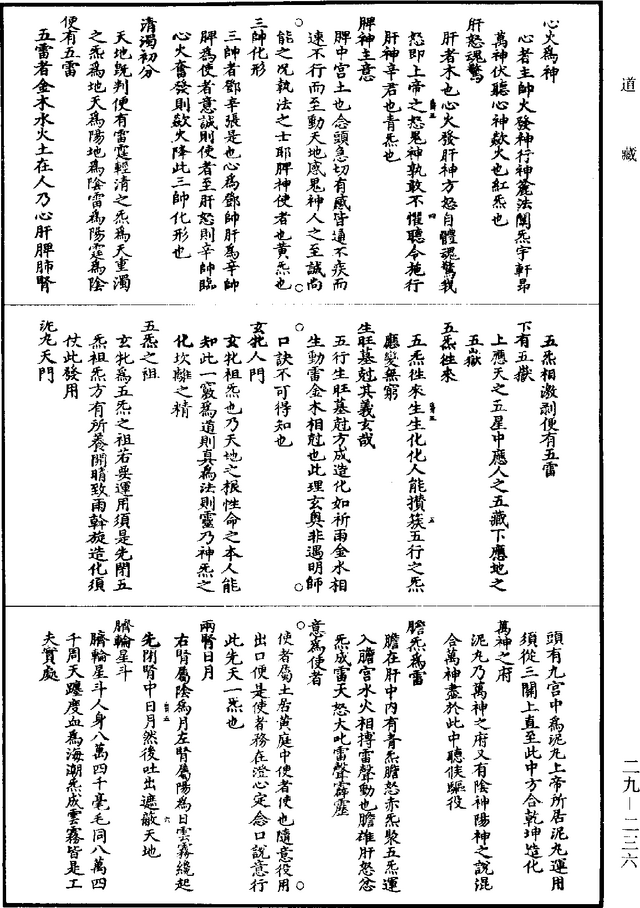 道藏
心火爲神
心者主帥火發神行神麄法闡炁宇軒昂
萬神伏聽心神欻火也紅炁也
肝怒魂驚
肝者木也心火發肝神方怒自體魂驚我
怒即上帝之怒鬼神孰敢不懼聽令施行
肝神辛君也青炁也
脾神主意
脾中宫土也念頭急切有感皆通不疾而
速不行而至動天地感鬼神人之至誠尚
能之况執法之士耶脾神使者也黄炁也
三帥化形
三帥者鄧辛張是也心爲鄧帥肝爲辛帥
脾爲使者意誠則使者至肝怒則辛帥臨
心火奮發則欻火降此三帥化形也
清濁初分
天地既判便有雷霆輕清之炁爲天重濁
之炁爲地天爲陽地爲陰雷爲陽霆爲陰
便有五雷
五雷者金木水火土在人乃心肝脾肺腎
五炁相激剥便有五雷
下有五嶽
上應天之五星中應人之五藏下應地之
五嶽
五炁徃來
五炁徃來生生化化人能攅簇五行之炁
應變無窮
生旺墓尅其義玄哉
五行生旺墓尅方成造化如祈雨金水相
生動雷金木相尅也此理玄奥非遇明師
口訣不可得知也
玄牝人門
玄牝祖炁也乃天地之根性命之本人能
知此一竅爲道則真爲法則靈乃神炁之
化坎離之精
五炁之祖
玄牝爲五炁之祖若要運用須是先閉五
炁祖炁方有所養開晴致雨斡旋造化須
仗此發用
泥丸天門
頭有九宫中爲泥丸上帝所居泥丸運用
須從三關上直至此中方合乾坤造化
萬神之府
泥丸乃萬神之府又有陰神陽神之說混
合萬神盡於此中聽候驅役
膽炁爲雷
膽在肝中内有青炁膽怒赤炁聚五炁運
入膽宫水火相搏雷聲動也膽雄肝怒忿
炁成雷天怒大叱雷聲霹靂
意爲使者
使者屬土居黄庭中使者使也隨意役用
出口便是使者務在澄心定念口說意行
此先天一炁也
兩腎日月
右腎屬陰爲月左腎屬陽爲日雲霧纔起
先閉腎中日月然後吐出遮蔽天地
臍輪星斗
臍輪星斗人身八萬四千毫毛同八萬四
千周天躔度血爲海潮炁成雲霧皆是工
夫實處
二九—二三六